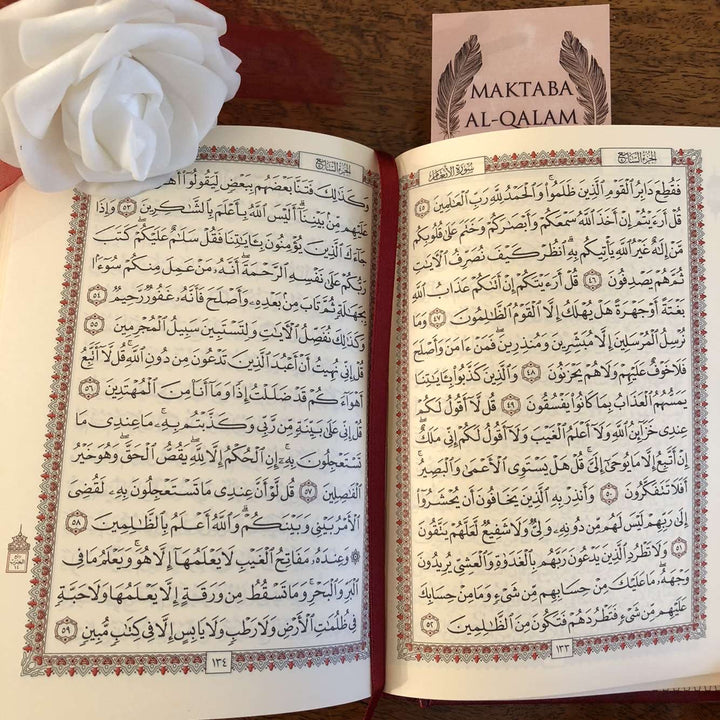 MAKTABA
AL-QALAM
سُورَةُ الأَنْعَامِ
الجُزْءُ السَّابِعُ
فَقُطِعَ دَابِرُ ٱلْقَوْمِ ٱلَّذِينَ ظَلَمُوا۟ ۚ وَٱلْحَمْدُ لِلَّهِ رَبِّ ٱلْعَٰلَمِينَ ٤٥
قُلْ أَرَءَيْتُمْ إِنْ أَخَذَ ٱللَّهُ سَمْعَكُمْ وَأَبْصَٰرَكُمْ وَخَتَمَ عَلَىٰ قُلُوبِكُم
مَّنْ إِلَٰهٌ غَيْرُ ٱللَّهِ يَأْتِيكُم بِهِ ۗ ٱنظُرْ كَيْفَ نُصَرِّفُ ٱلْءَايَٰتِ
ثُمَّ هُمْ يَصْدِفُونَ ٤٦ قُلْ أَرَءَيْتَكُمْ إِنْ أَتَىٰكُمْ عَذَابُ ٱللَّهِ
بَغْتَةً أَوْ جَهْرَةً هَلْ يُهْلَكُ إِلَّا ٱلْقَوْمُ ٱلظَّٰلِمُونَ ٤٧ وَمَا
نُرْسِلُ ٱلْمُرْسَلِينَ إِلَّا مُبَشِّرِينَ وَمُنذِرِينَ ۖ فَمَنْ ءَامَنَ وَأَصْلَحَ
فَلَا خَوْفٌ عَلَيْهِمْ وَلَا هُمْ يَحْزَنُونَ ٤٨ وَٱلَّذِينَ كَذَّبُوا۟ بِـَٔايَٰتِنَا
يَمَسُّهُمُ ٱلْعَذَابُ بِمَا كَانُوا۟ يَفْسُقُونَ ٤٩ قُل لَّآ أَقُولُ لَكُمْ
عِندِى خَزَآئِنُ ٱللَّهِ وَلَآ أَعْلَمُ ٱلْغَيْبَ وَلَآ أَقُولُ لَكُمْ إِنِّى مَلَكٌ ۖ
إِنْ أَتَّبِعُ إِلَّا مَا يُوحَىٰٓ إِلَىَّ ۚ قُلْ هَلْ يَسْتَوِى ٱلْأَعْمَىٰ وَٱلْبَصِيرُ ۚ
أَفَلَا تَتَفَكَّرُونَ ٥٠ وَأَنذِرْ بِهِ ٱلَّذِينَ يَخَافُونَ أَن يُحْشَرُوٓا۟
إِلَىٰ رَبِّهِمْ ۙ لَيْسَ لَهُم مِّن دُونِهِۦ وَلِىٌّ وَلَا شَفِيعٌ لَّعَلَّهُمْ يَتَّقُونَ
٥١ وَلَا تَطْرُدِ ٱلَّذِينَ يَدْعُونَ رَبَّهُم بِٱلْغَدَوٰةِ وَٱلْعَشِىِّ يُرِيدُونَ
وَجْهَهُۥ ۖ مَا عَلَيْكَ مِنْ حِسَابِهِم مِّن شَىْءٍ وَمَا مِنْ حِسَابِكَ
عَلَيْهِم مِّن شَىْءٍ فَتَطْرُدَهُمْ فَتَكُونَ مِنَ ٱلظَّٰلِمِينَ ٥٢
١٣٣
الجُزْءُ السَّابِعُ
وَكَذَٰلِكَ فَتَنَّا بَعْضَهُم بِبَعْضٍ لِّيَقُولُوٓا۟ أَهَٰٓ
عَلَيْهِم مِّنۢ بَيْنِنَآ ۗ أَلَيْسَ ٱللَّهُ بِأَعْلَمَ بِٱلشَّٰكِرِينَ ٥٣ وَإِذَا
جَآءَكَ ٱلَّذِينَ يُؤْمِنُونَ بِـَٔايَٰتِنَا فَقُلْ سَلَٰمٌ عَلَيْكُمْ ۖ كَتَبَ
رَبُّكُمْ عَلَىٰ نَفْسِهِ ٱلرَّحْمَةَ ۖ أَنَّهُۥ مَنْ عَمِلَ مِنكُمْ سُوٓءًۢا
بِجَهَٰلَةٍ ثُمَّ تَابَ مِنۢ بَعْدِهِۦ وَأَصْلَحَ فَأَنَّهُۥ غَفُورٌ رَّحِيمٌ ٥٤
وَكَذَٰلِكَ نُفَصِّلُ ٱلْءَايَٰتِ وَلِتَسْتَبِينَ سَبِيلُ ٱلْمُجْرِمِينَ ٥٥
قُلْ إِنِّى نُهِيتُ أَنْ أَعْبُدَ ٱلَّذِينَ تَدْعُونَ مِن دُونِ ٱللَّهِ ۚ قُل لَّآ أَتَّبِعُ
أَهْوَآءَكُمْ ۙ قَدْ ضَلَلْتُ إِذًا وَمَآ أَنَا۠ مِنَ ٱلْمُهْتَدِينَ ٥٦
قُلْ إِنِّى عَلَىٰ بَيِّنَةٍ مِّن رَّبِّى وَكَذَّبْتُم بِهِۦ ۚ مَا عِندِى مَا
تَسْتَعْجِلُونَ بِهِۦٓ ۚ إِنِ ٱلْحُكْمُ إِلَّا لِلَّهِ ۖ يَقُصُّ ٱلْحَقَّ ۖ وَهُوَ خَيْرُ
ٱلْفَٰصِلِينَ ٥٧ قُل لَّوْ أَنَّ عِندِى مَا تَسْتَعْجِلُونَ بِهِۦ لَقُضِىَ
ٱلْأَمْرُ بَيْنِى وَبَيْنَكُمْ ۗ وَٱللَّهُ أَعْلَمُ بِٱلظَّٰلِمِينَ ٥٨
۞ وَعِندَهُۥ مَفَاتِحُ ٱلْغَيْبِ لَا يَعْلَمُهَآ إِلَّا هُوَ ۚ وَيَعْلَمُ مَا فِى
ٱلْبَرِّ وَٱلْبَحْرِ ۚ وَمَا تَسْقُطُ مِن وَرَقَةٍ إِلَّا يَعْلَمُهَا وَلَا حَبَّةٍ
فِى ظُلُمَٰتِ ٱلْأَرْضِ وَلَا رَطْبٍ وَلَا يَابِسٍ إِلَّا فِى كِتَٰبٍ مُّبِينٍ ٥٩
١٣٤